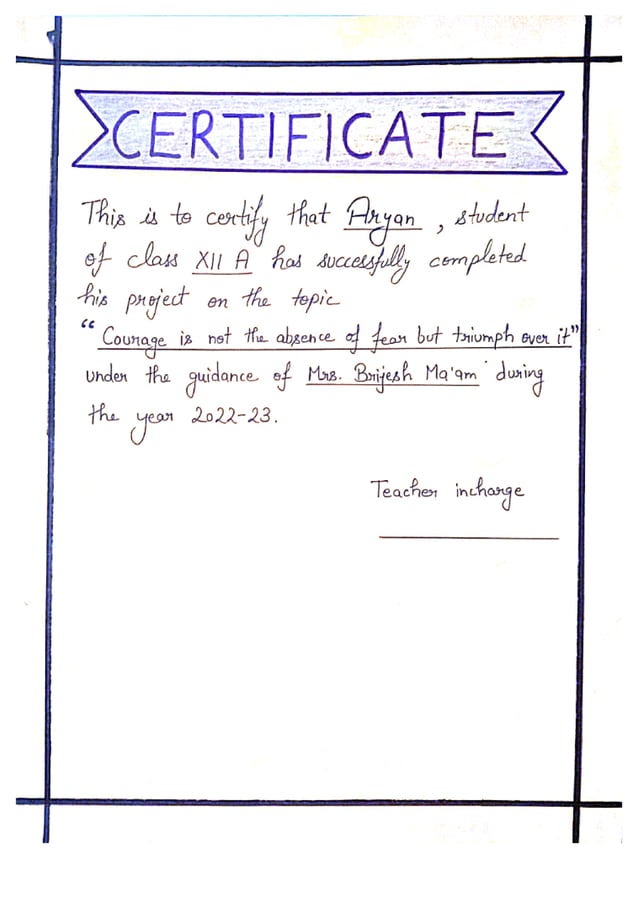 CERTIFICATE
This is to certify that Aryan, student
of class XII A has successfully completed
his project on the topic
"Courage is not the absence of fear but triumph over it"
under the guidance of Mrs. Brijesh Ma'am during
the year 2022-23.
Teacher incharge